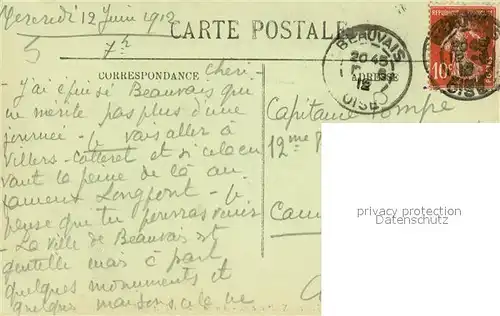 Mercredi 12 Juin 1912
CARTE POSTALE
5
7h
BEAUVAIS
20 45
12
OISE
10
CORRESPONDANCE
ADRESSE
Cheri -
- J'ai épuisé Beauvais qui
ne mérite pas plus d'une
journée - Je vais aller à
Villers-Cotteret et si cela en
vaut la peine de là au
Longpont - Je
pense que tu pourras venir
- La ville de Beauvais est
gentille mais à part
quelques monuments et
quelques maisons cela ne
Capitaine Pompe
12me
Cam
privacy protection
Datenschutz